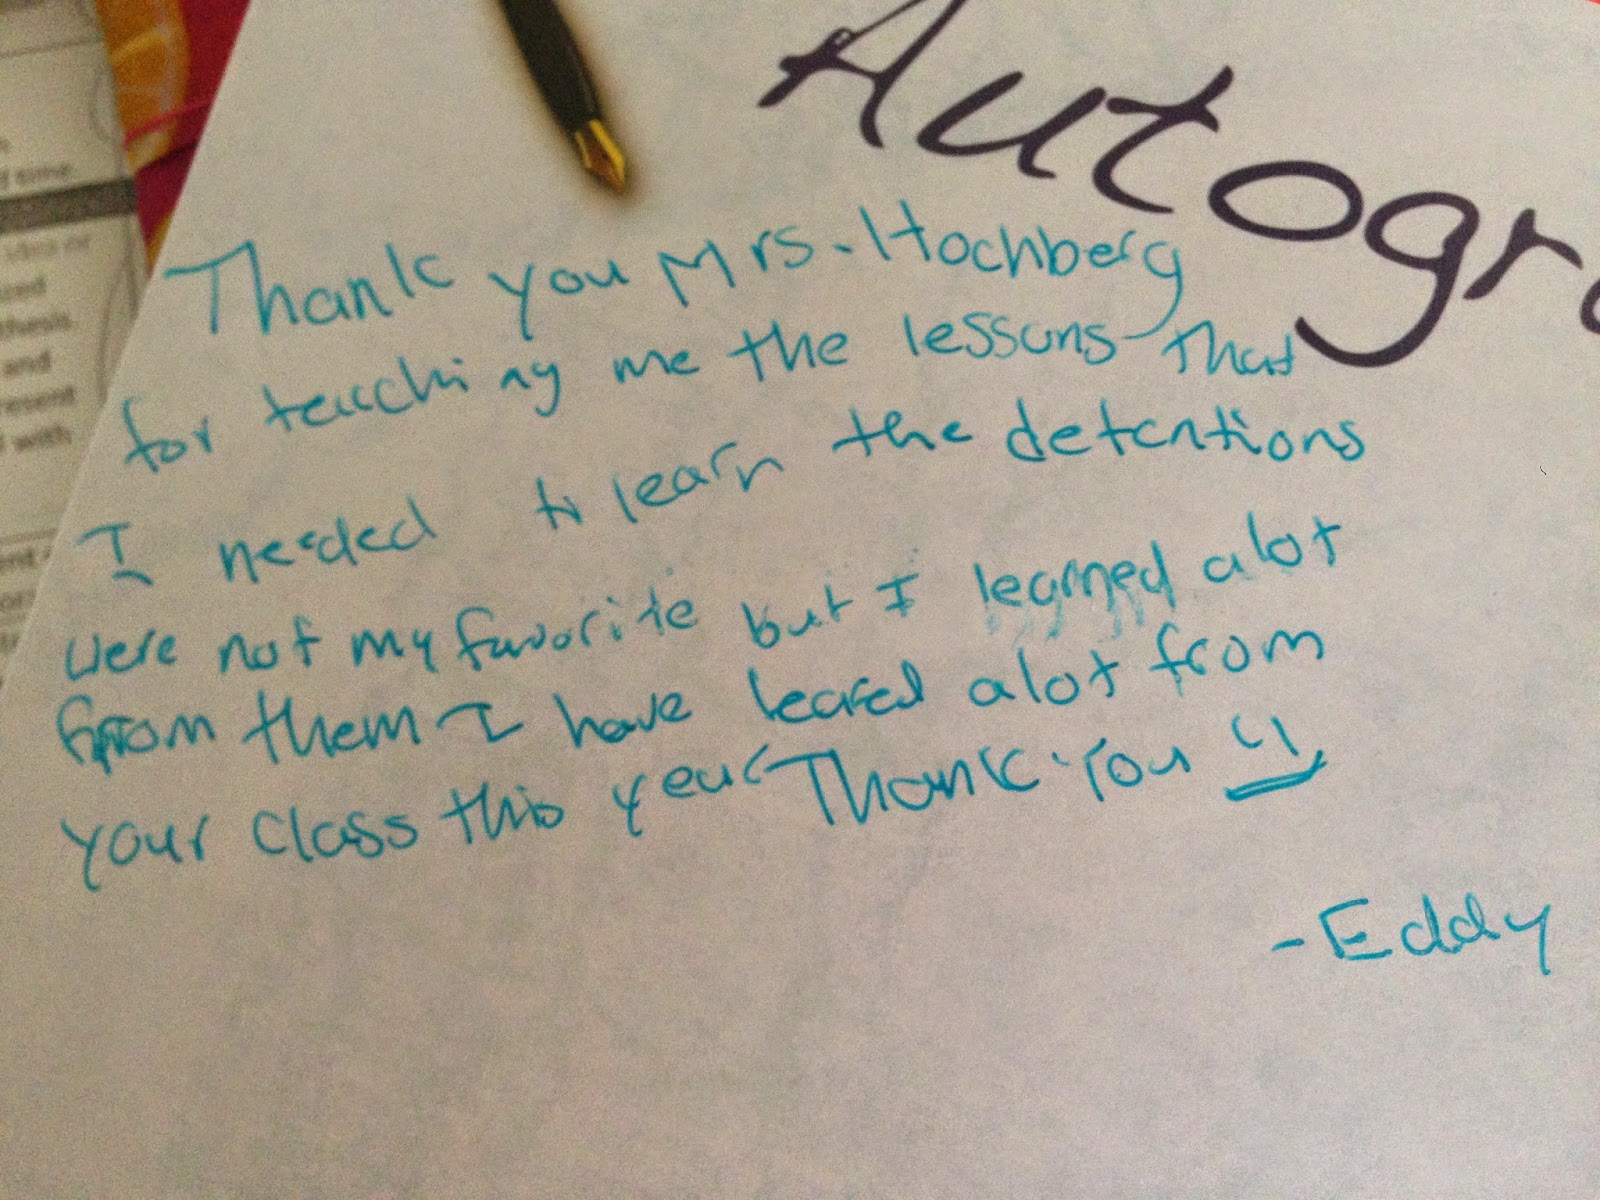 Autogr
Thank you Mrs. Hochberg
for teaching me the lessons that
I needed to learn the detentions
were not my favorite but I learned alot
from them I have leared alot from
your class this year Thank You
-Eddy
time.
idea or
thesis.
and
resent
with